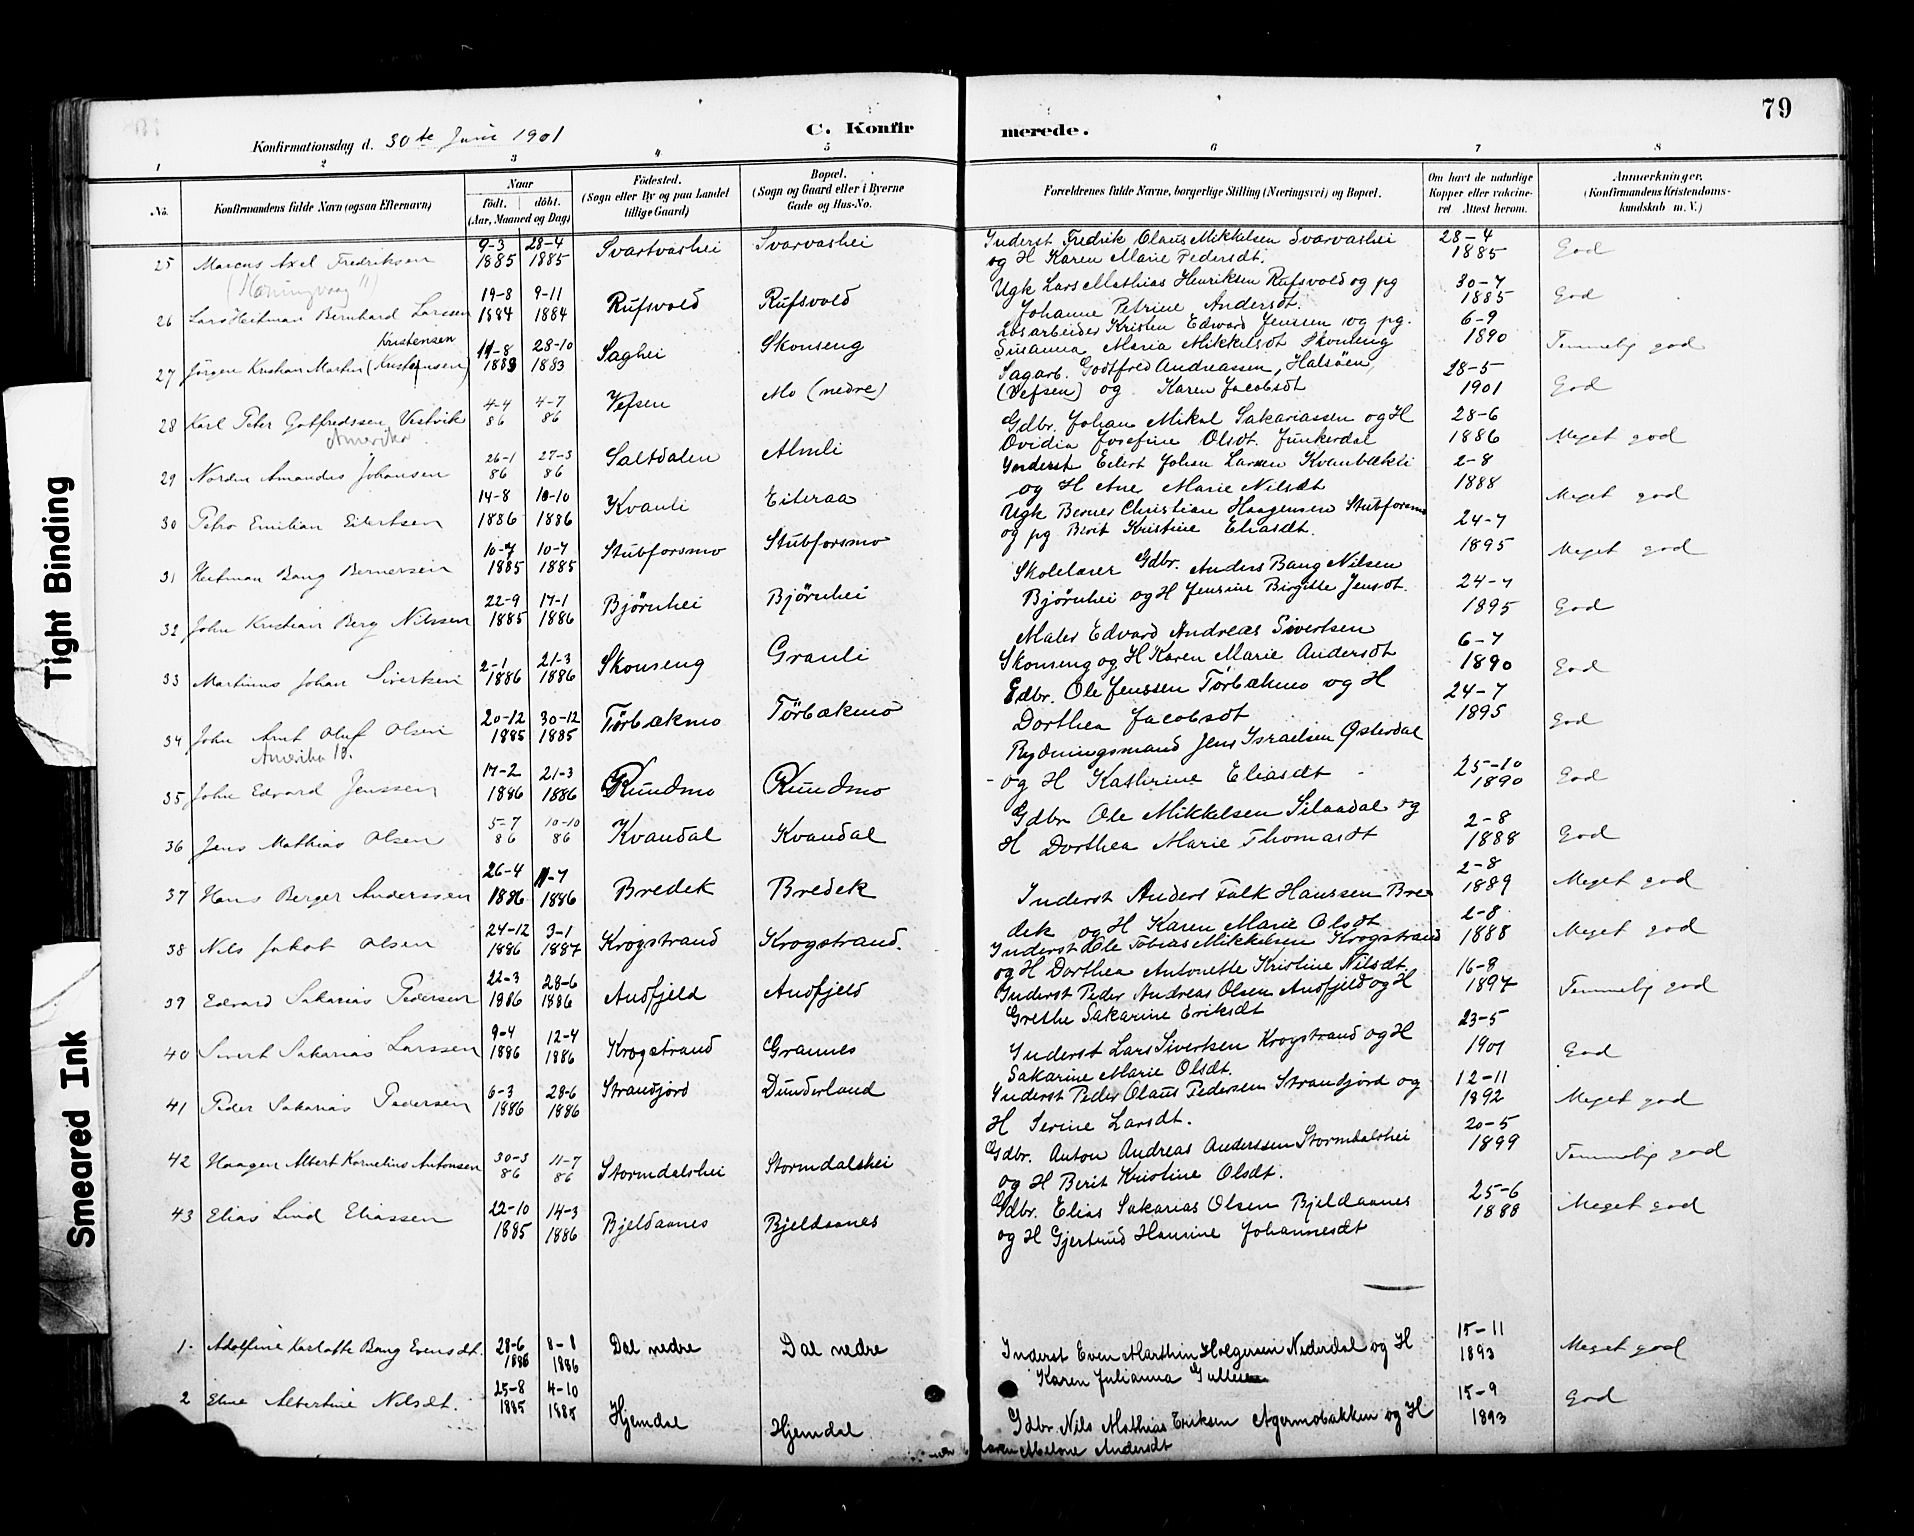 79
Konfirmationsdag d. 30te Juni 1901
C. Konfirmerede.
1 2 3 4 5 6 7 8
No.
Konfirmandens fulde Navn (ogsaa Efternavn)
Naar
født. døbt.
(Aar, Maaned og Dag)
Fødested.
(Sogn eller By og paa Landet
tillige Gaard)
Bopæl.
(Sogn og Gaard eller i Byerne
Gade og Hus-No.
Forældrenes fulde Navne, borgerlige Stilling (Næringsvei) og Bopæl.
Om havt de naturlige
Kopper eller vaccine-
ret Attest herom.
Anmærkninger.
(Konfirmandens Kristendoms-
kundskab m. V.)
25 Marcus Axel Fredriksen 9-3 1885 28-4 1885 Svartvashei Svarvashei
Inderst Fredrik Claus Mikkelsen Svarvashei
og H Karen Marie Pedersdt. 28-4 1885 God
26 Lars Heitman Bernhard Larssen 19-8 1884 9-11 1884 Rufsvold Rufsvold
Ugk Lars Mathias Henriksen Rufsvold og pg
Johanne Petrine Andersdt. 30-7 1885 God
Kristensen
27 Jörgen Kristian Martin (Kristensen) 11-8 1883 28-10 1883 Saghei Skonseng
Løsarbeider Kristen Edward Jenssen og pg.
Susanna Maria Mikkelsdt Skonseng 6-9 1890 Temmelig god
28 Karl Peter Gotfredssen Vestvik 4-4 86 4-7 86 Vefsen Mo (nedre)
Amerika
Sagarb. Godtfred Andreassen, Halsøen,
(Vefsen) og Karen Jacobsdt 28-5 1901 God
29 Nordin Amandus Johansen 26-1 86 27-3 86 Saltdalen Almli
Gdbr. Johan Mikal Sakariassen og H
Ovidia Josefine Olsdt. Junkerdal 28-6 1886 Meget god
30 Petro Emilian Eilertsen 14-8 1886 10-10 1886 Kvanli Eiteraa
Inderst Eilert Johan Larsen Kvanbækli
og H Ane Marie Nilsdt 2-8 1888 Meget god
31 Heitman Bang Bernersen 10-7 1885 10-7 1885 Stubforsmo Stubforsmo
Ugk Berner Christian Haagensen Stubforsmo
og pg Berit Kristine Eliasdt. 24-7 1895 Meget god
32 John Kristian Berg Nilssen 22-9 1885 17-1 1886 Bjørnhei Bjørnhei
Skolelærer Gdbr. Anders Bang Nilsen
Bjørnhei og H Jensine Birgitte Jensdt. 24-7 1895 God
33 Martinus Johan Sivertsen 2-1 1886 21-3 1886 Skonseng Granli
Maler Edvard Andreas Sivertsen
Skonseng og H Karen Marie Andersdt 6-7 1890 God
34 John Arnt Oluf Olsen 20-12 1885 30-12 1885 Tørbækmo Tørbækmo
Amerika 10.
Gdbr. Ole Jenssen Tørbækmo og H
Dorthea Jacobsdt 24-7 1895 God
35 John Edvard Jenssen 17-2 1886 21-3 1886 Ruudmo Ruudmo
Rydningsmand Jens Israelsen Østerdal
og H Kathrine Eliasdt 25-10 1890 God
36 Jens Mathias Olsen 5-7 86 10-10 86 Kvandal Kvandal
Gdbr Ole Mikkelsen Silaadal og
H Dorthea Marie Thomasdt 2-8 1888 God
37 Hans Berger Anderssen 26-4 1886 11-7 1886 Bredek Bredek
Inderst Anders Falk Hanssen Bre
dek og H Karen Marie Olsdt 2-8 1889 Meget god
38 Nils Jakob Olsen 24-12 1886 3-1 1887 Krogstrand Krogstrand.
Inderst Ole Tobias Mikkelsen Krogstrand
og H Dorthea Antonette Kristine Nilsdt 2-8 1888 Meget god
39 Edvard Sakarias Pedersen 22-3 1886 28-6 1886 Andfjeld Andfjeld
Inderst Peder Andreas Olsen Andfjeld og H
Grethe Sakarine Eriksdt 16-8 1897 Temmelig god
40 Sivert Sakarias Larssen 9-4 1886 12-4 1886 Krogstrand Grannes
Inderst Lars Sivertsen Krogstrand og H
Sakarine Marie Olsdt. 23-5 1901 God
41 Peder Sakarias Pedersen 6-3 1886 28-6 1886 Strandjord Dunderland
Inderst Peder Olaus Pedersen Strandjord og
H Serine Larsdt. 12-11 1892 Meget god
42 Haagen Albert Kornelius Antonsen 30-3 86 11-7 86 Stormdalshei Stormdalshei
Gdbr. Anton Andreas Anderssen Stormdalshei
og H Berit Kristine Olsdt. 20-5 1899 Temmelig god
43 Elias Lind Eliassen 22-10 1885 14-3 1886 Bjeldaanes Bjeldaanes
Gdbr. Elias Sakarias Olsen Bjeldaanes
og H Gjertrud Hansine Johannesdt 25-6 1888 Meget god
1. Adolfine Karlotte Bang Evensdt. 28-6 1886 8-8 1886 Dal nedre Dal nedre
Inderst Even Marthin Holgersen Nederdal og H
Karen Julianna 15-11 1893 Meget god
2 Eline Albertine Nilsdt. 25-8 1885 4-10 1885 Hjemdal Hjemdal
Gdbr Nils Mathias Eriksen Agermobakken og H
Maren Melone Andersdt 15-9 1893 God
Tight Binding
Smeared Ink